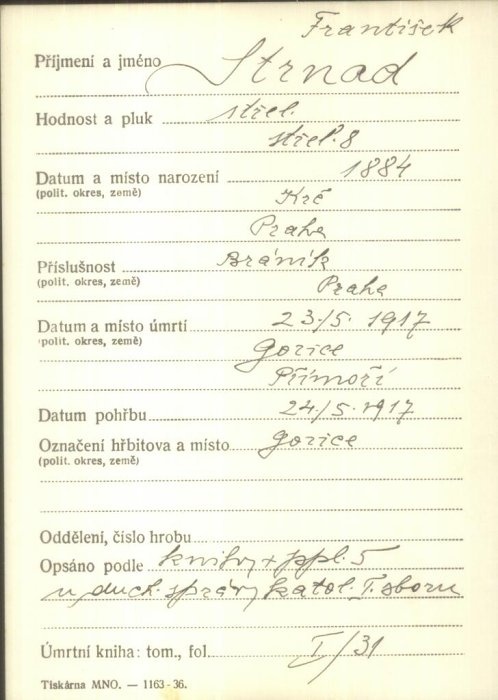 František
Příjmení a jméno Strnad
Hodnost a pluk střel.
střel. 8
Datum a místo narození 1884
(polit. okres, země) Krč
Praha
Příslušnost Bráník
(polit. okres, země) Praha
Datum a místo úmrtí 23./5. 1917
(polit. okres, země) Gorice
Přímoří
Datum pohřbu 24./5. 1917
Označení hřbitova a místo Gorice
(polit. okres, země)
Oddělení, číslo hrobu
Opsáno podle knihy + ppl. 5
u duch. správy katol. I. sboru
Úmrtní kniha: tom., fol. I/31
Tiskárna MNO. — 1163-36.